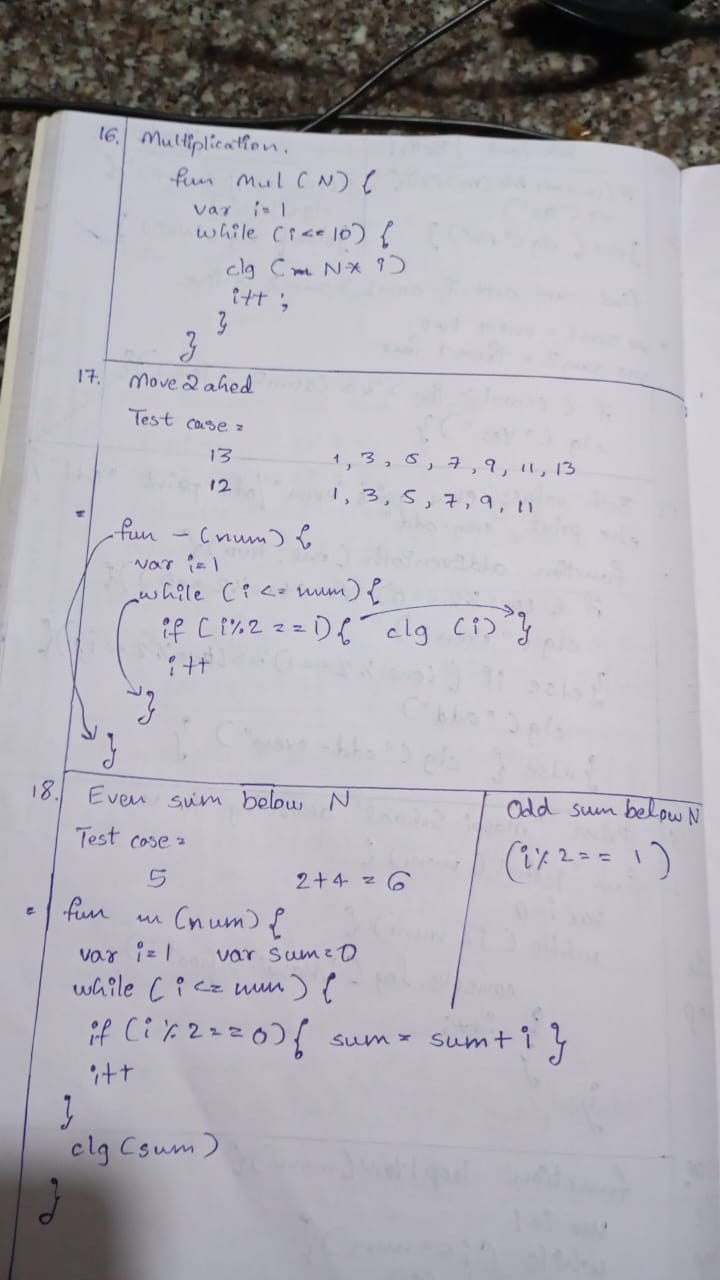 16. Multiplication.
fun Mul (N) {
var i=1
while (i<=10) {
clg (N* i)
i++ ;
}
}
17. Move 2 ahed
Test case =
13 1, 3, 5, 7, 9, 11, 13
12 1, 3, 5, 7, 9, 11
= fun - (num) {
var i=1
while (i <= num) {
if (i%2 == 1) { clg (i) }
i++
}
}
18. Even sum below N
Test case =
5 2+4 = 6
= fun m (num) {
var i=1 var sum=0
while (i <= num) {
if (i%2==0) { sum = sum + i }
i++
}
clg (sum)
}
Odd sum below N
(i%2 == 1)